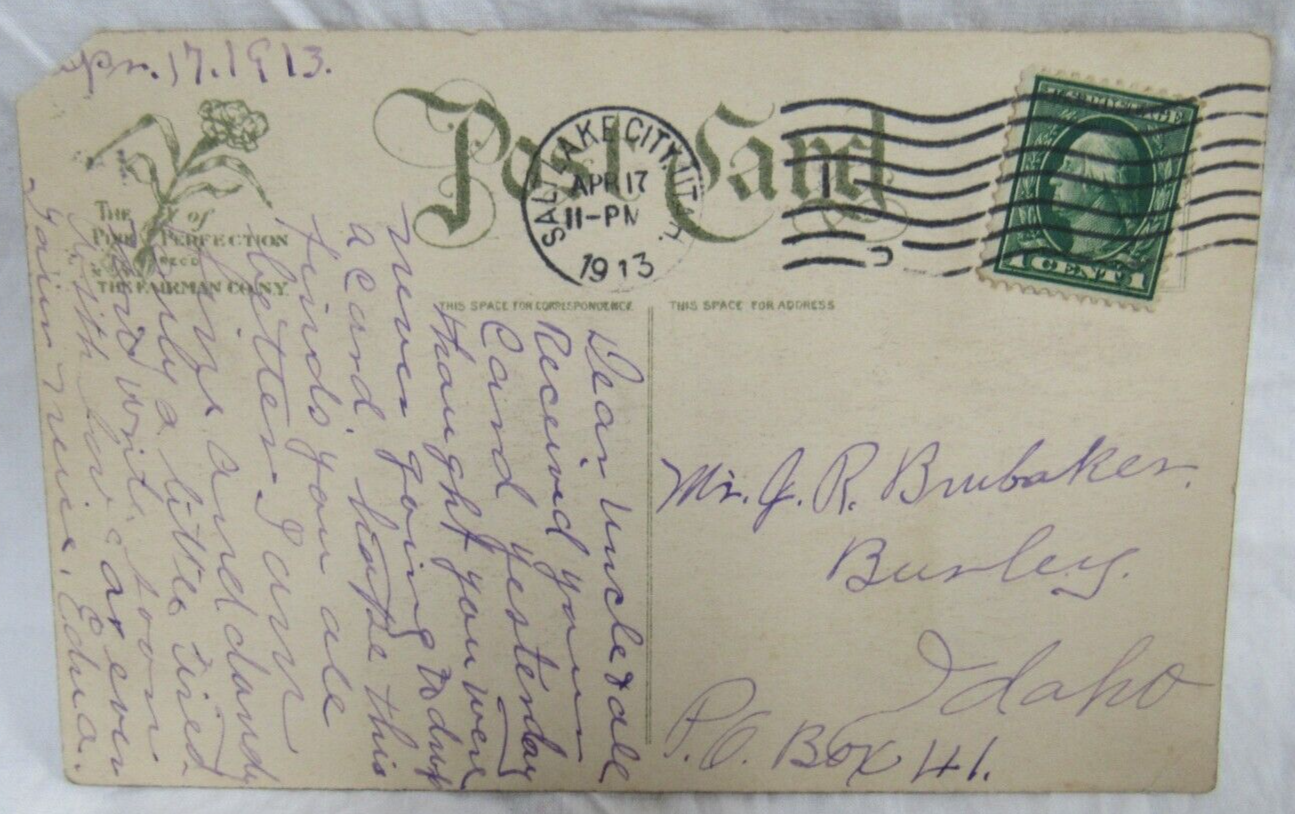 Apr. 17. 1913.
Post Card
SALT LAKE CITY, UTAH
APR 17
11-PM
1913
1 CENT 1
THE PINK of PERFECTION
THE FAIRMAN CO. N.Y.
THIS SPACE FOR CORRESPONDENCE
THIS SPACE FOR ADDRESS
Dear Uncle & all
Received your
Card yesterday
thought you were
never going to drop
a card. hope this
finds you all
better. I am
fine and dandy
only a little tired.
and write soon
With love as ever
your niece, Edna.
Mr. J. R. Brubaker.
Burley.
Idaho
P.O. Box 41.